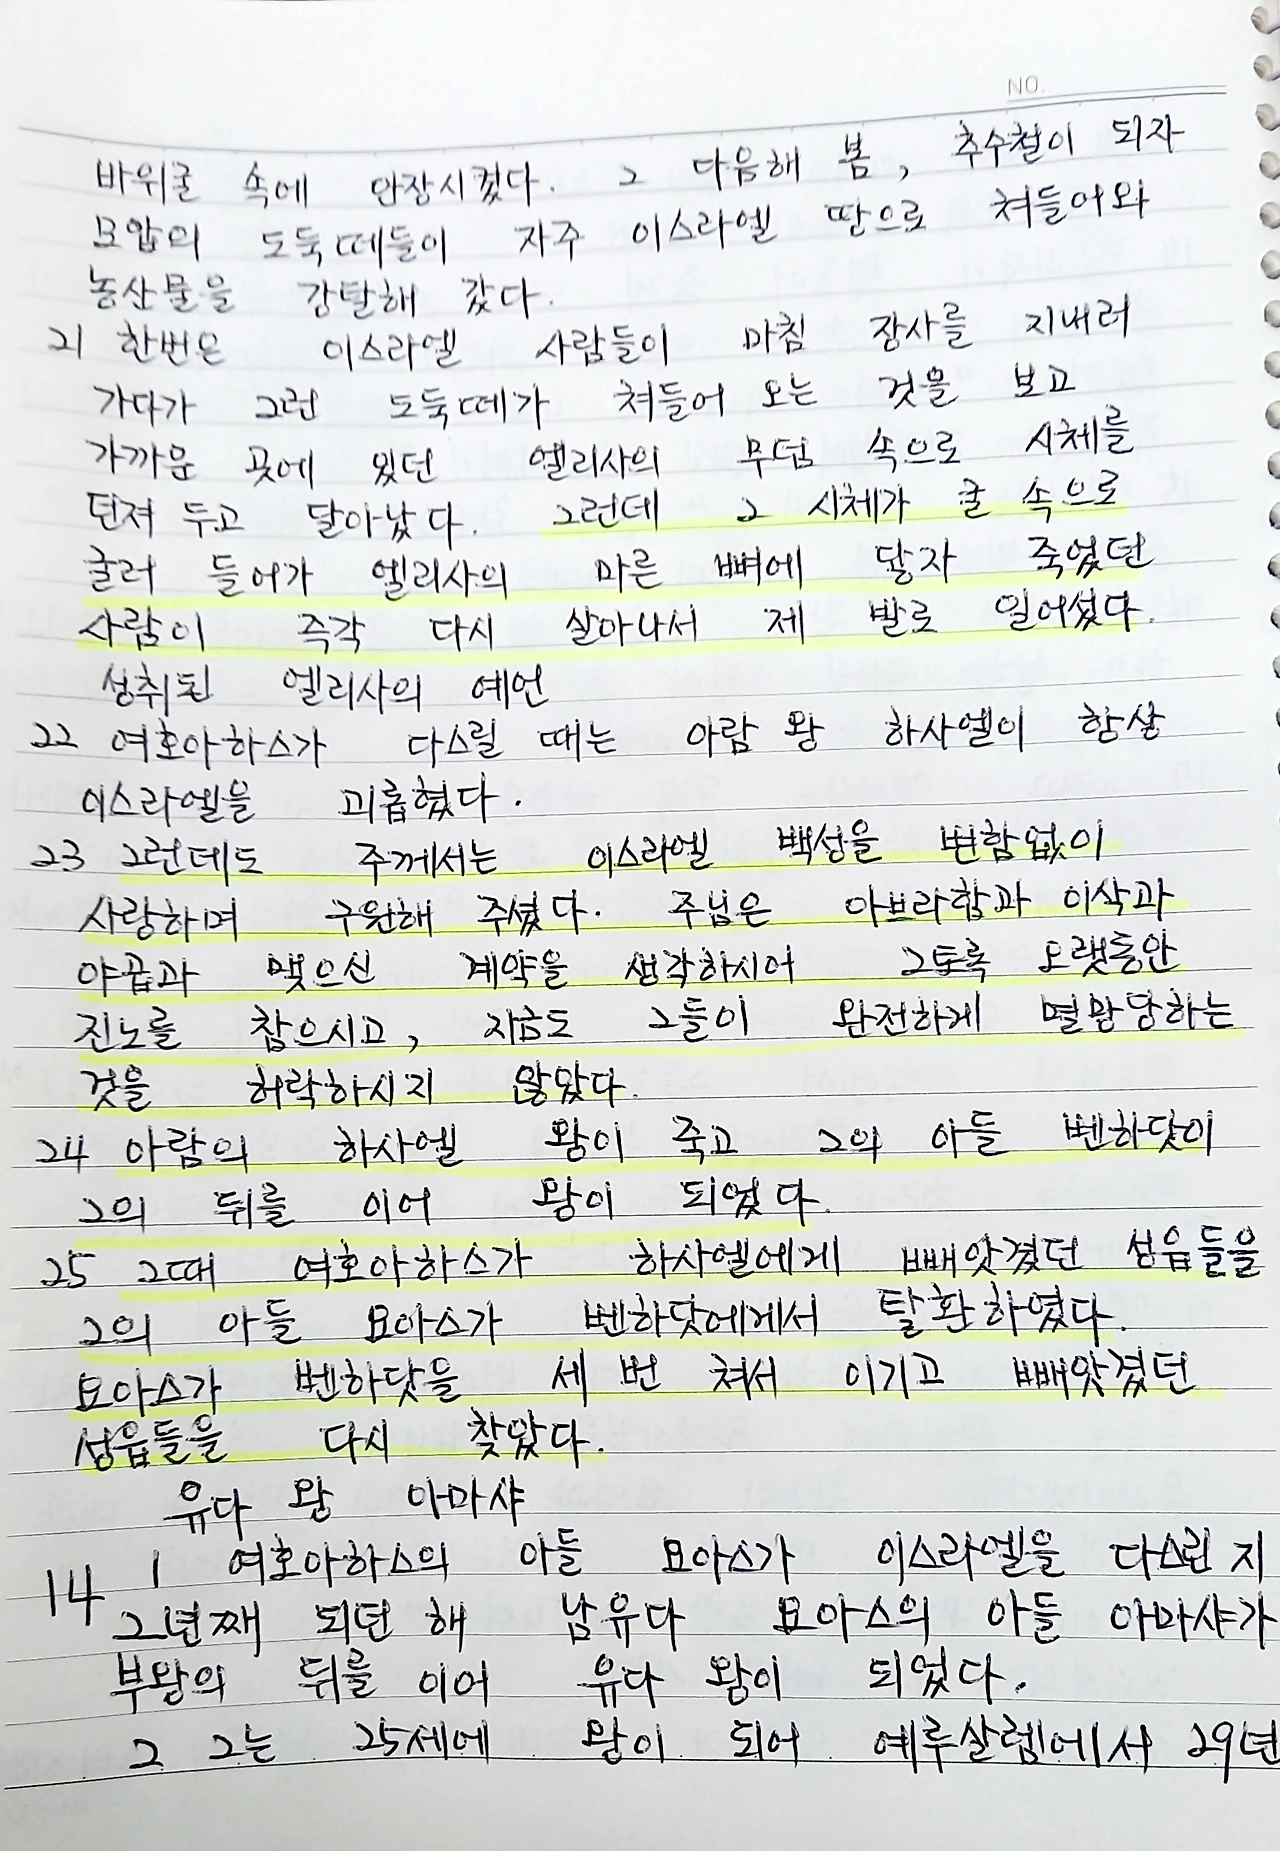 NO.
바위굴 속에 안장시켰다. 그 다음해 봄, 추수철이 되자
모압의 도둑떼들이 자주 이스라엘 땅으로 쳐들어와
농산물을 강탈해 갔다.
21 한번은 이스라엘 사람들이 마침 장사를 지내러
가다가 그런 도둑떼가 쳐들어 오는 것을 보고
가까운 곳에 있던 엘리사의 무덤 속으로 시체를
던져 두고 달아났다. 그런데 그 시체가 굴 속으로
굴러 들어가 엘리사의 마른 뼈에 닿자 죽었던
사람이 즉각 다시 살아나서 제 발로 일어섰다.
성취된 엘리사의 예언
22 여호아하스가 다스릴 때는 아람 왕 하사엘이 항상
이스라엘을 괴롭혔다.
23 그런데도 주께서는 이스라엘 백성을 변함없이
사랑하며 구원해 주셨다. 주님은 아브라함과 이삭과
야곱과 맺으신 계약을 생각하시어 그토록 오랫동안
진노를 참으시고, 지금도 그들이 완전하게 멸망당하는
것을 허락하시지 않았다.
24 아람의 하사엘 왕이 죽고 그의 아들 벤하닷이
그의 뒤를 이어 왕이 되었다.
25 그때 여호아하스가 하사엘에게 빼앗겼던 성읍들을
그의 아들 요아스가 벤하닷에게서 탈환하였다.
요아스가 벤하닷을 세 번 쳐서 이기고 빼앗겼던
성읍들을 다시 찾았다.
유다 왕 아마샤
14 1 여호아하스의 아들 요아스가 이스라엘을 다스린 지
2년째 되던 해 남유다 요아스의 아들 아마샤가
부왕의 뒤를 이어 유다 왕이 되었다.
2 그는 25세에 왕이 되어 예루살렘에서 29년